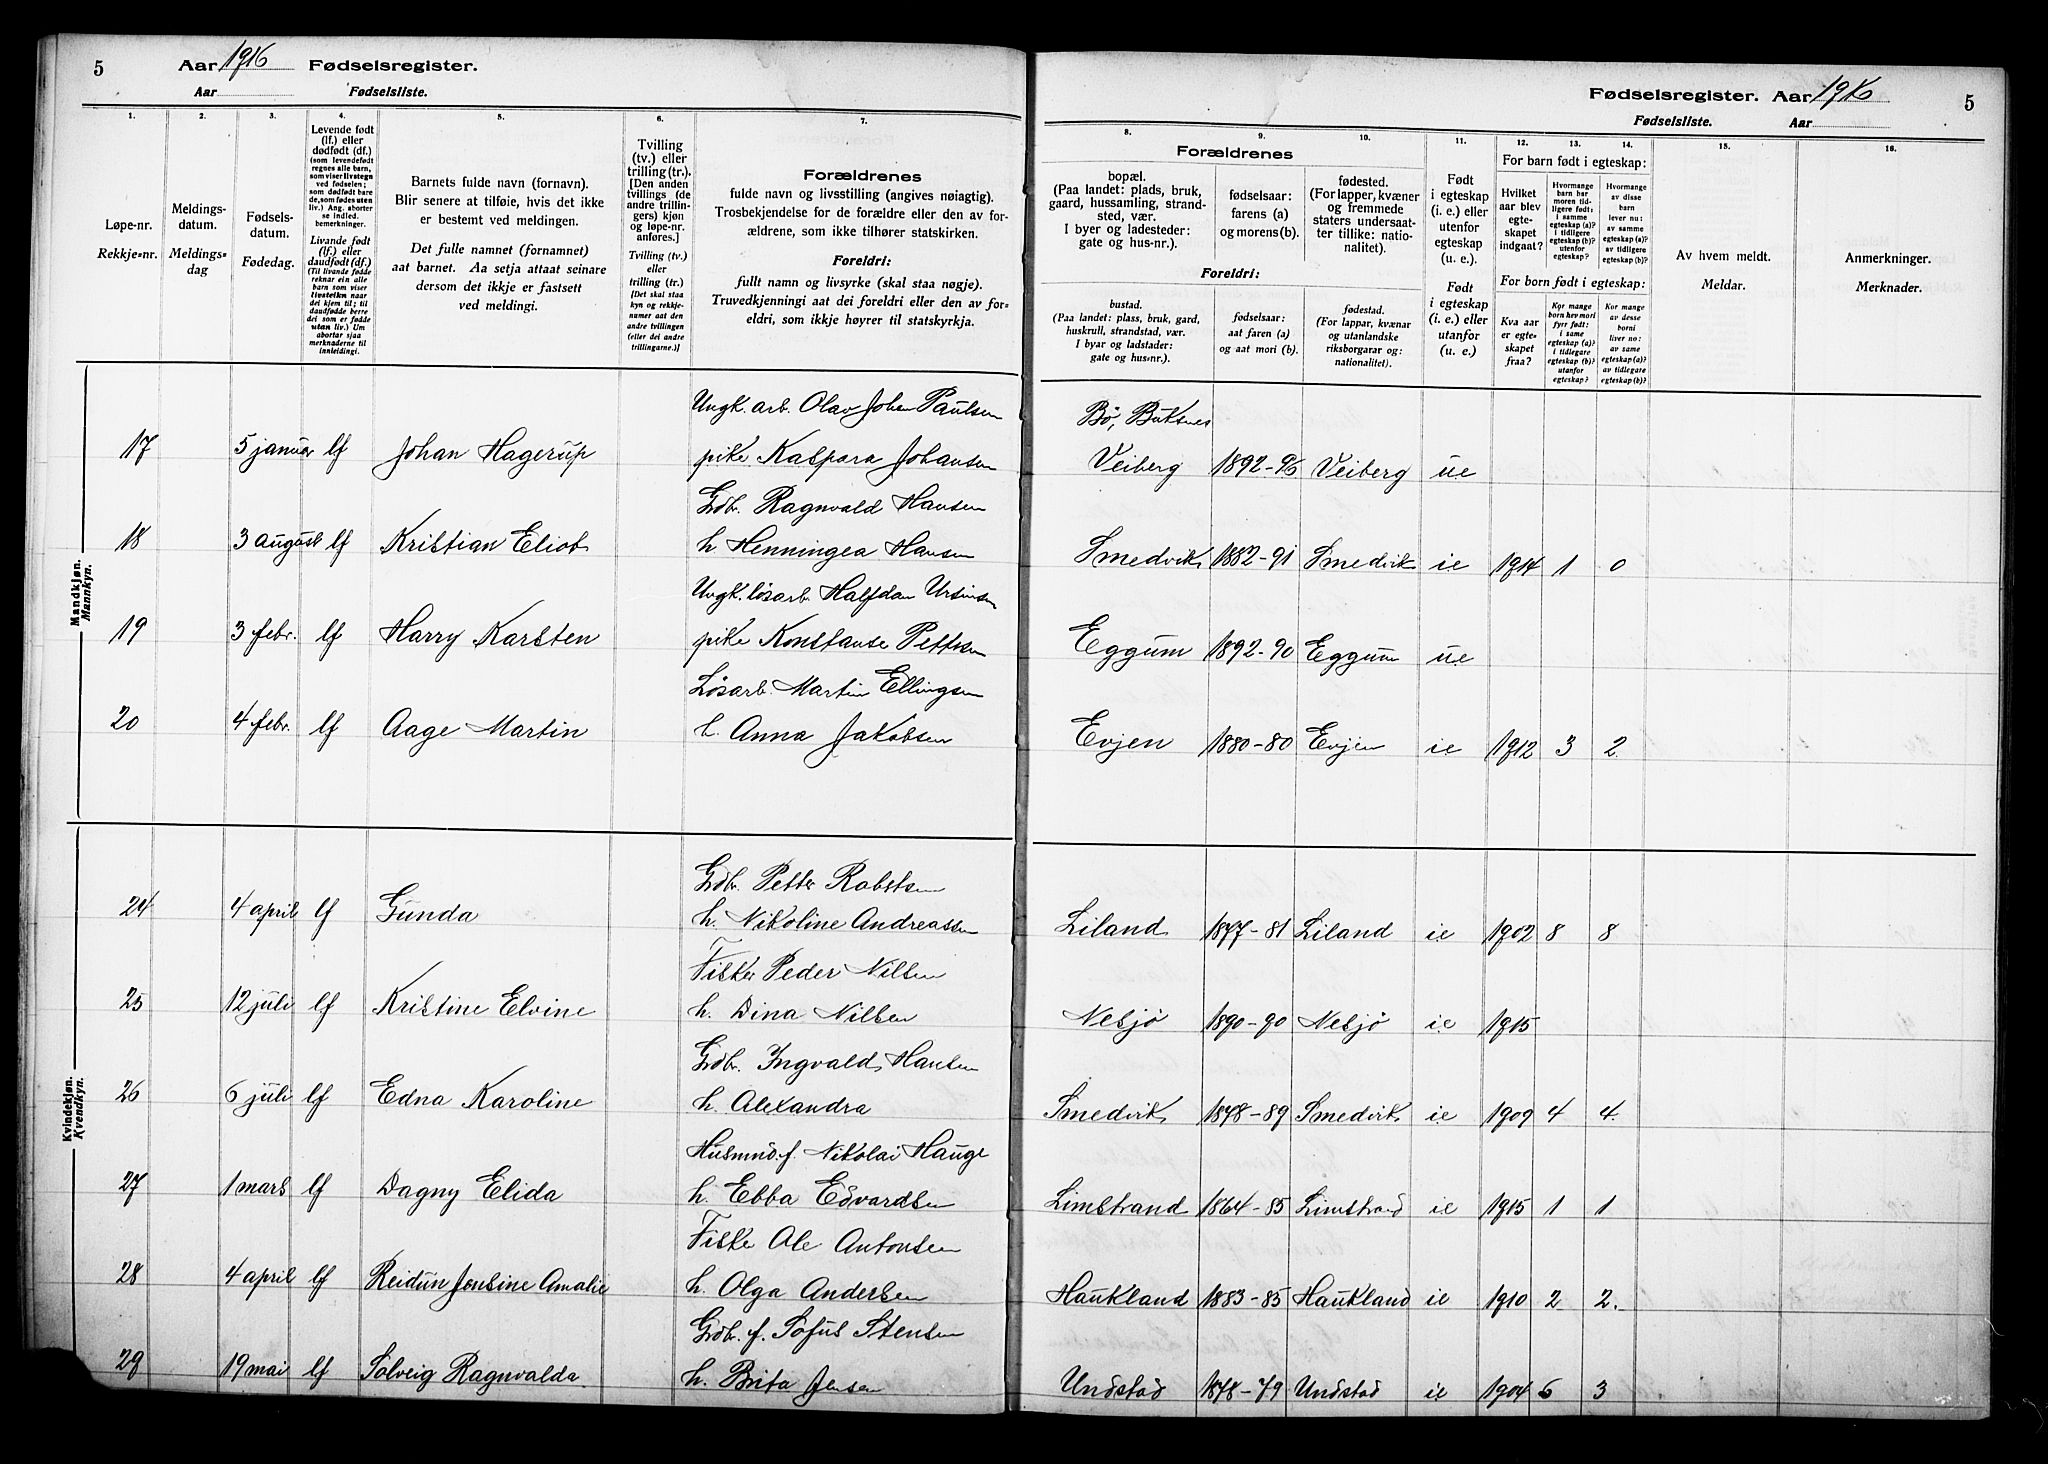 5 Aar 1916 Fødselsregister.
Aar Fødselsliste.
1. 2. 3. 4. 5. 6. 7.
Løpe-nr.
Rekkje-nr.
Meldings-
datum.
Meldings-
dag
Fødsels-
datum.
Fødedag.
Levende født
(lf.) eller
dødfødt (df.)
(som levendefødt
regnes alle barn,
som viser livstegn
ved fødselen;
som dødfødt bare
de, som fødes uten
liv.) Ang. aborter
se indled.
bemerkninger.
Livande født
(lf.) eller
daudfødt (df.)
(Til livande fødde
reknar ein alle
barn som viser
livsteikn naar
dei kjem til; til
daudfødde berre
dei som er fødde
utan liv.) Um
abortar sjaa
merknaderne til
innleidingi.
Barnets fulde navn (fornavn).
Blir senere at tilføie, hvis det ikke
er bestemt ved meldingen.
Det fulle namnet (fornamnet)
aat barnet. Aa setja attaat seinare
dersom det ikkje er fastsett
ved meldingi.
Tvilling
(tv.) eller
trilling (tr.).
[Den anden
tvillings (de
andre trillin-
gers) kjøn
og løpe-nr.
anføres.]
Tvilling (tv.)
eller
trilling (tr.)
[Det skal staa
kyn og rekkje-
numer aat den
andre tvillingen
(eller dei andre
trillingarne.)]
Forældrenes
fulde navn og livsstilling (angives nøiagtig).
Trosbekjendelse for de forældre eller den av for-
ældrene, som ikke tilhører statskirken.
Foreldri:
fullt namn og livsyrke (skal staa nøgje).
Truvedkjenningi aat dei foreldri eller den av for-
eldri, som ikkje høyrer til statskyrkja.
Fødselsregister. Aar 1916 5
Fødselsliste. Aar
8. 9. 10. 11. 12. 13. 14. 15. 16.
Forældrenes
bopæl.
(Paa landet: plads, bruk,
gaard, hussamling, strand-
sted, vær.
I byer og ladesteder:
gate og hus-nr.).
fødselsaar:
farens (a)
og morens (b).
fødested.
(For lapper, kvæner
og fremmede
staters undersaat-
ter tillike: natio-
nalitet).
Foreldri:
bustad.
(Paa landet: plass, bruk, gard,
huskrull, strandstad, vær.
I byar og ladstader:
gate og hus-nr.).
fødselsaar:
aat faren (a)
og aat mori (b).
fødestad.
(For lappar, kvænar
og utanlandske
riksborgarar og:
nationalitet).
Født
i egteskap
(i. e.) eller
utenfor
egteskap
(u. e.).
Født
i egteskap
(i. e.) eller
utanfor
(u. e.).
For barn født i egteskap:
Hvilket
aar blev
egte-
skapet
indgaat?
Hvormange
barn har
moren tid-
ligere født:
i samme
egteskap (a)?
i tidligere
egteskap (b)?
utenfor
egteskap?
Hvormange
av disse
barn
lever nu:
av samme
egteskap (a)?
av tidligere
egteskap (b)?
For born født i egteskap:
Kva aar
er egte-
skapet
fraa?
Kor mange
born hev mori
fyrr født:
i same
egteskap (a)?
i tidlegare
egteskap (b)?
utanfor
egteskap?
Kor mange
av desse
borni
liver no:
av same
egteskap (a)?
av tidlegare
egteskap (b)?
Av hvem meldt.
Meldar.
Anmerkninger.
Merknader.
Mandkjøn.
Mannkyn.
Ungk. arb. Olav Johan Paulsen Bø, Buksnes
17 5 januar lf Johan Hagerup pike Kaspara Johansen Veiberg 1892-96 Veiberg ue
Grdbr. Ragnvald Hansen
18 3 august lf Kristian Eliot h Henningea Hansen Smedvik 1882-91 Smedvik ie 1914 1 0
Ungk. løsarb. Halfdan Ursinsen
19 3 febr. lf Harry Karsten pike Konstanse Pettersen Eggum 1892-90 Eggum ue
Løsarb. Martin Ellingsen
20 4 febr. lf Aage Martin h. Anna Jakobsen Evjen 1880-80 Evjen ie 1912 3 2
Kvindekjøn.
Kvendkyn.
Grdbr. Petter Robertsen
24 4 april lf Gunda h. Nikoline Andreassen Liland 1877-81 Liland ie 1902 8 8
Fisker Peder Nilsen
25 12 juli lf Kristine Elvine h. Dina Nilsen Nesjø 1890-90 Nesjø ie 1915
Grdbr. Ingvald Hansen
26 6 juli lf Edna Karoline h. Alexandra Smedvik 1878-89 Smedvik ie 1909 4 4.
Husmnd. f. Nikolai Hauge
27 1 mars lf Dagny Elida h. Ebba Edvardsen Limstrand 1864-85 Limstrand ie 1915 1 1
Fisker Ole Antonsen
28 4 april lf Reidun Jensine Amalie h. Olga Andersen Haukland 1883-85 Haukland ie 1910 2 2.
Grdbr. f. Sofus Stensen
29 19 mai lf Solveig Ragnvalda h. Brita Jensen Undstad 1878-79 Undstad ie 1904 6 3